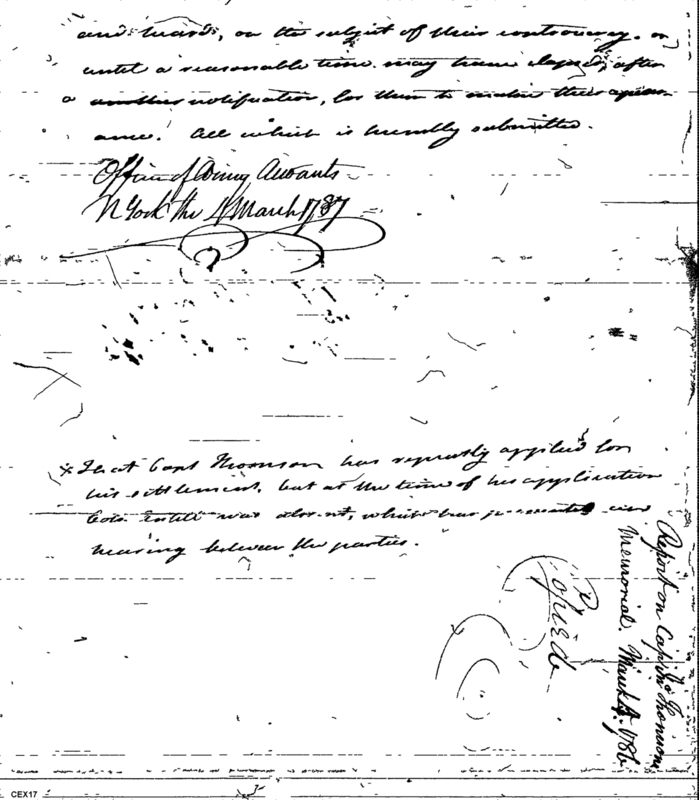 and heard, on the subject of their controversy. or
until a reasonable time may have elapsed, after
another notification, for them to make their appear-
ance. All which is humbly submitted.
Office of Army Accounts
N York the 4 March 1787
x That Capt Thomson has repeatedly applied for
his settlement, but at the time of his application
Colo. was absent, which has prevented
hearing between the parties.
Copied
Report on Capt Thomson
Memorial. March 4. 1786
CEX17